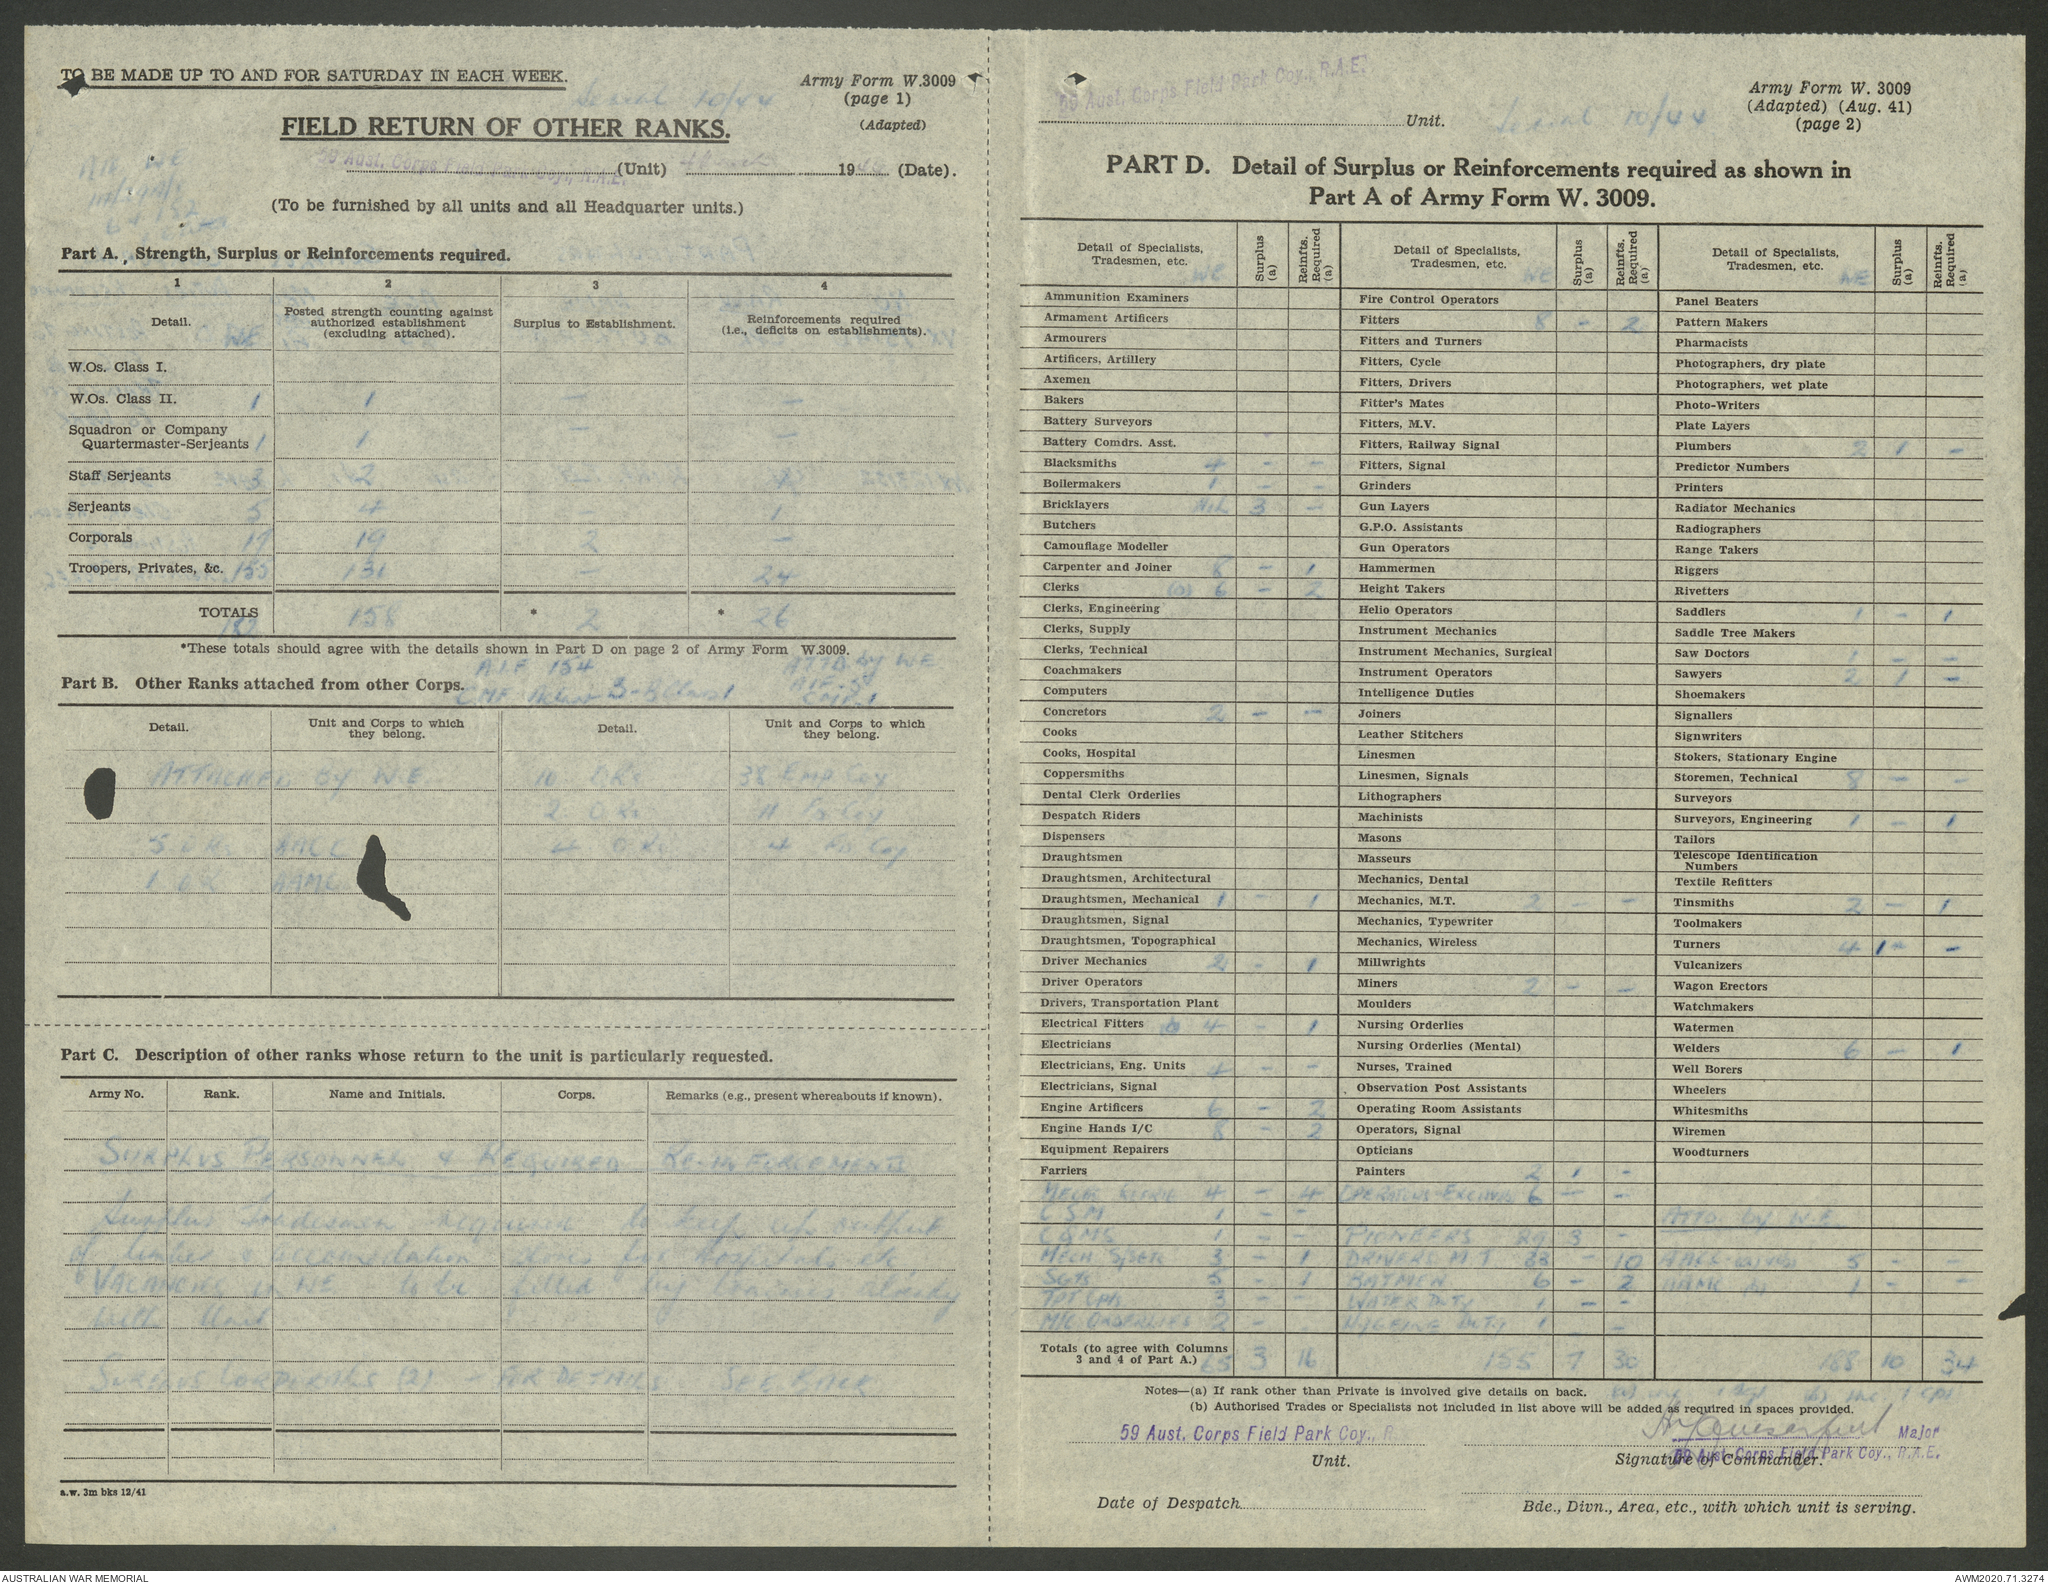 TO BE MADE UP TO AND FOR SATURDAY IN EACH WEEK.
Serial 10/44
Army Form W.3009
(page 1)
(Adapted)
FIELD RETURN OF OTHER RANKS.
59 Aust. Corps Field Park Coy., R.A.E. (Unit) 19 (Date).
(To be furnished by all units and all Headquarter units.)
Part A. Strength, Surplus or Reinforcements required.
1 2 3 4
Detail. WE Posted strength counting against authorized establishment (excluding attached). Surplus to Establishment. Reinforcements required (i.e., deficits on establishments).
W.Os. Class I.
W.Os. Class II. 1 1 — —
Squadron or Company
Quartermaster-Serjeants 1 1 — —
Staff Serjeants 3 2 — 1
Serjeants 5 4 — 1
Corporals 17 19 2 —
Troopers, Privates, &c. 155 131 — 24
TOTALS 182 158 * 2 * 26
*These totals should agree with the details shown in Part D on page 2 of Army Form W.3009.
A.I.F 154 ATTD by W.E
Part B. Other Ranks attached from other Corps.
Detail. Unit and Corps to which they belong. Detail. Unit and Corps to which they belong.
ATTACHED by W.E. 10 ORs 38 Emp Coy
2 ORs
5 ORs 4 ORs
1 OR AAMC
Part C. Description of other ranks whose return to the unit is particularly requested.
Army No. Rank. Name and Initials. Corps. Remarks (e.g., present whereabouts if known).
SURPLUS PERSONNEL & REQUIRED RE-INFORCEMENTS
Surplus Tradesmen required to keep up output
of timber & accomodation stores for Hospitals etc.
VACANCIES in WE to be filled by trainees already
with Unit
SURPLUS CORPORALS (2) - FOR DETAILS SEE BACK
a.w. 3m bks 12/41
59 Aust. Corps Field Park Coy., R.A.E.
Unit. Serial 10/44
Army Form W. 3009
(Adapted) (Aug. 41)
(page 2)
PART D. Detail of Surplus or Reinforcements required as shown in
Part A of Army Form W. 3009.
Detail of Specialists, Tradesmen, etc. WE Surplus (a) Reinfts. Required (a)
Ammunition Examiners
Armament Artificers
Armourers
Artificers, Artillery
Axemen
Bakers
Battery Surveyors
Battery Comdrs. Asst.
Blacksmiths 4 — —
Boilermakers 1 — —
Bricklayers NIL 3 —
Butchers
Camouflage Modeller
Carpenter and Joiner 8 — 1
Clerks (a) 6 — 2
Clerks, Engineering
Clerks, Supply
Clerks, Technical
Coachmakers
Computers
Concretors 2 — —
Cooks
Cooks, Hospital
Coppersmiths
Dental Clerk Orderlies
Despatch Riders
Dispensers
Draughtsmen
Draughtsmen, Architectural
Draughtsmen, Mechanical 1 — 1
Draughtsmen, Signal
Draughtsmen, Topographical
Driver Mechanics 2 — 1
Driver Operators
Drivers, Transportation Plant
Electrical Fitters 4 — 1
Electricians
Electricians, Eng. Units 4 — —
Electricians, Signal
Engine Artificers 6 — 2
Engine Hands I/C 8 — 2
Equipment Repairers
Farriers
4 — 4
CSM 1 — —
CQMS 1 — —
MECH S/SGTS 3 — 1
SGTS 5 — 1
TPT Cpls 3 — —
ORDERLIES 2 —
Totals (to agree with Columns 3 and 4 of Part A.) 65 3 16
Detail of Specialists, Tradesmen, etc. WE Surplus (a) Reinfts. Required (a)
Fire Control Operators
Fitters 8 — 2
Fitters and Turners
Fitters, Cycle
Fitters, Drivers
Fitter's Mates
Fitters, M.V.
Fitters, Railway Signal
Fitters, Signal
Grinders
Gun Layers
G.P.O. Assistants
Gun Operators
Hammermen
Height Takers
Helio Operators
Instrument Mechanics
Instrument Mechanics, Surgical
Instrument Operators
Intelligence Duties
Joiners
Leather Stitchers
Linesmen
Linesmen, Signals
Lithographers
Machinists
Masons
Masseurs
Mechanics, Dental
Mechanics, M.T. 2 — —
Mechanics, Typewriter
Mechanics, Wireless
Millwrights
Miners 2 — —
Moulders
Nursing Orderlies
Nursing Orderlies (Mental)
Nurses, Trained
Observation Post Assistants
Operating Room Assistants
Operators, Signal
Opticians
Painters 2 1 —
6 — —
PIONEERS 29 3 —
DRIVERS M.T 33 — 10
BATMEN 6 — 2
WATER DUTY 1 — —
HYGIENE DUTY 1 —
155 7 30
Detail of Specialists, Tradesmen, etc. WE Surplus (a) Reinfts. Required (a)
Panel Beaters
Pattern Makers
Pharmacists
Photographers, dry plate
Photographers, wet plate
Photo-Writers
Plate Layers
Plumbers 2 1 —
Predictor Numbers
Printers
Radiator Mechanics
Radiographers
Range Takers
Riggers
Rivetters
Saddlers 1 — 1
Saddle Tree Makers
Saw Doctors 1 — —
Sawyers 2 1 —
Shoemakers
Signallers
Signwriters
Stokers, Stationary Engine
Storemen, Technical 8 — —
Surveyors
Surveyors, Engineering 1 — 1
Tailors
Telescope Identification Numbers
Textile Refitters
Tinsmiths 2 — 1
Toolmakers
Turners 4 1 —
Vulcanizers
Wagon Erectors
Watchmakers
Watermen
Welders 6 — 1
Well Borers
Wheelers
Whitesmiths
Wiremen
Woodturners
ATTD. by W.E.
5 — —
1 — —
188 10 34
Notes—(a) If rank other than Private is involved give details on back.
(b) Authorised Trades or Specialists not included in list above will be added as required in spaces provided.
59 Aust. Corps Field Park Coy., R.
Unit.
Major
59 Aust. Corps Field Park Coy., R.A.E.
Signature of Commander.
Date of Despatch
Bde., Divn., Area, etc., with which unit is serving.
AUSTRALIAN WAR MEMORIAL
AWM2020.71.3274